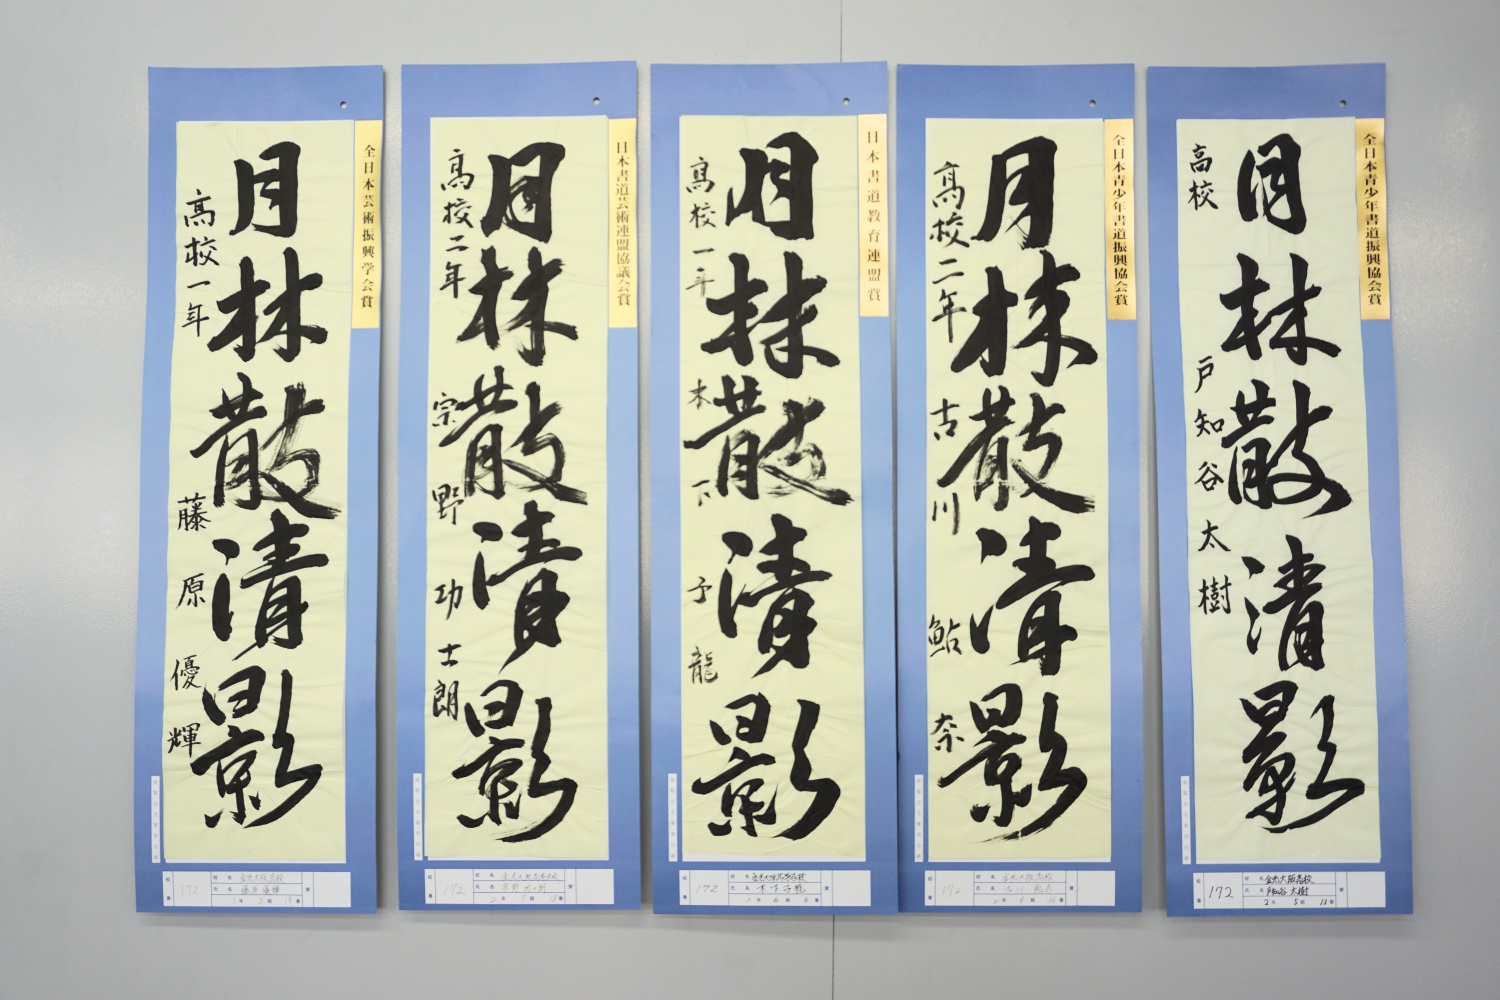 全日本芸術振興学会賞
月林散清影
高校一年 藤原優輝
172
金光大阪高校
藤原優輝
日本書道芸術連盟協議会賞
月林散清影
高校二年 宗野功士朗
172
日本書道教育連盟賞
月林散清影
高校一年 木下予龍
172
金光大阪高等学校
木下予龍
全日本青少年書道振興協会賞
月林散清影
高校二年 古川鮎奈
172
金光大阪高校
古川鮎奈
全日本青少年書道振興協会賞
月林散清影
高校 戸知谷太樹
172
金光大阪高校
戸知谷太樹
2年 5組 13番